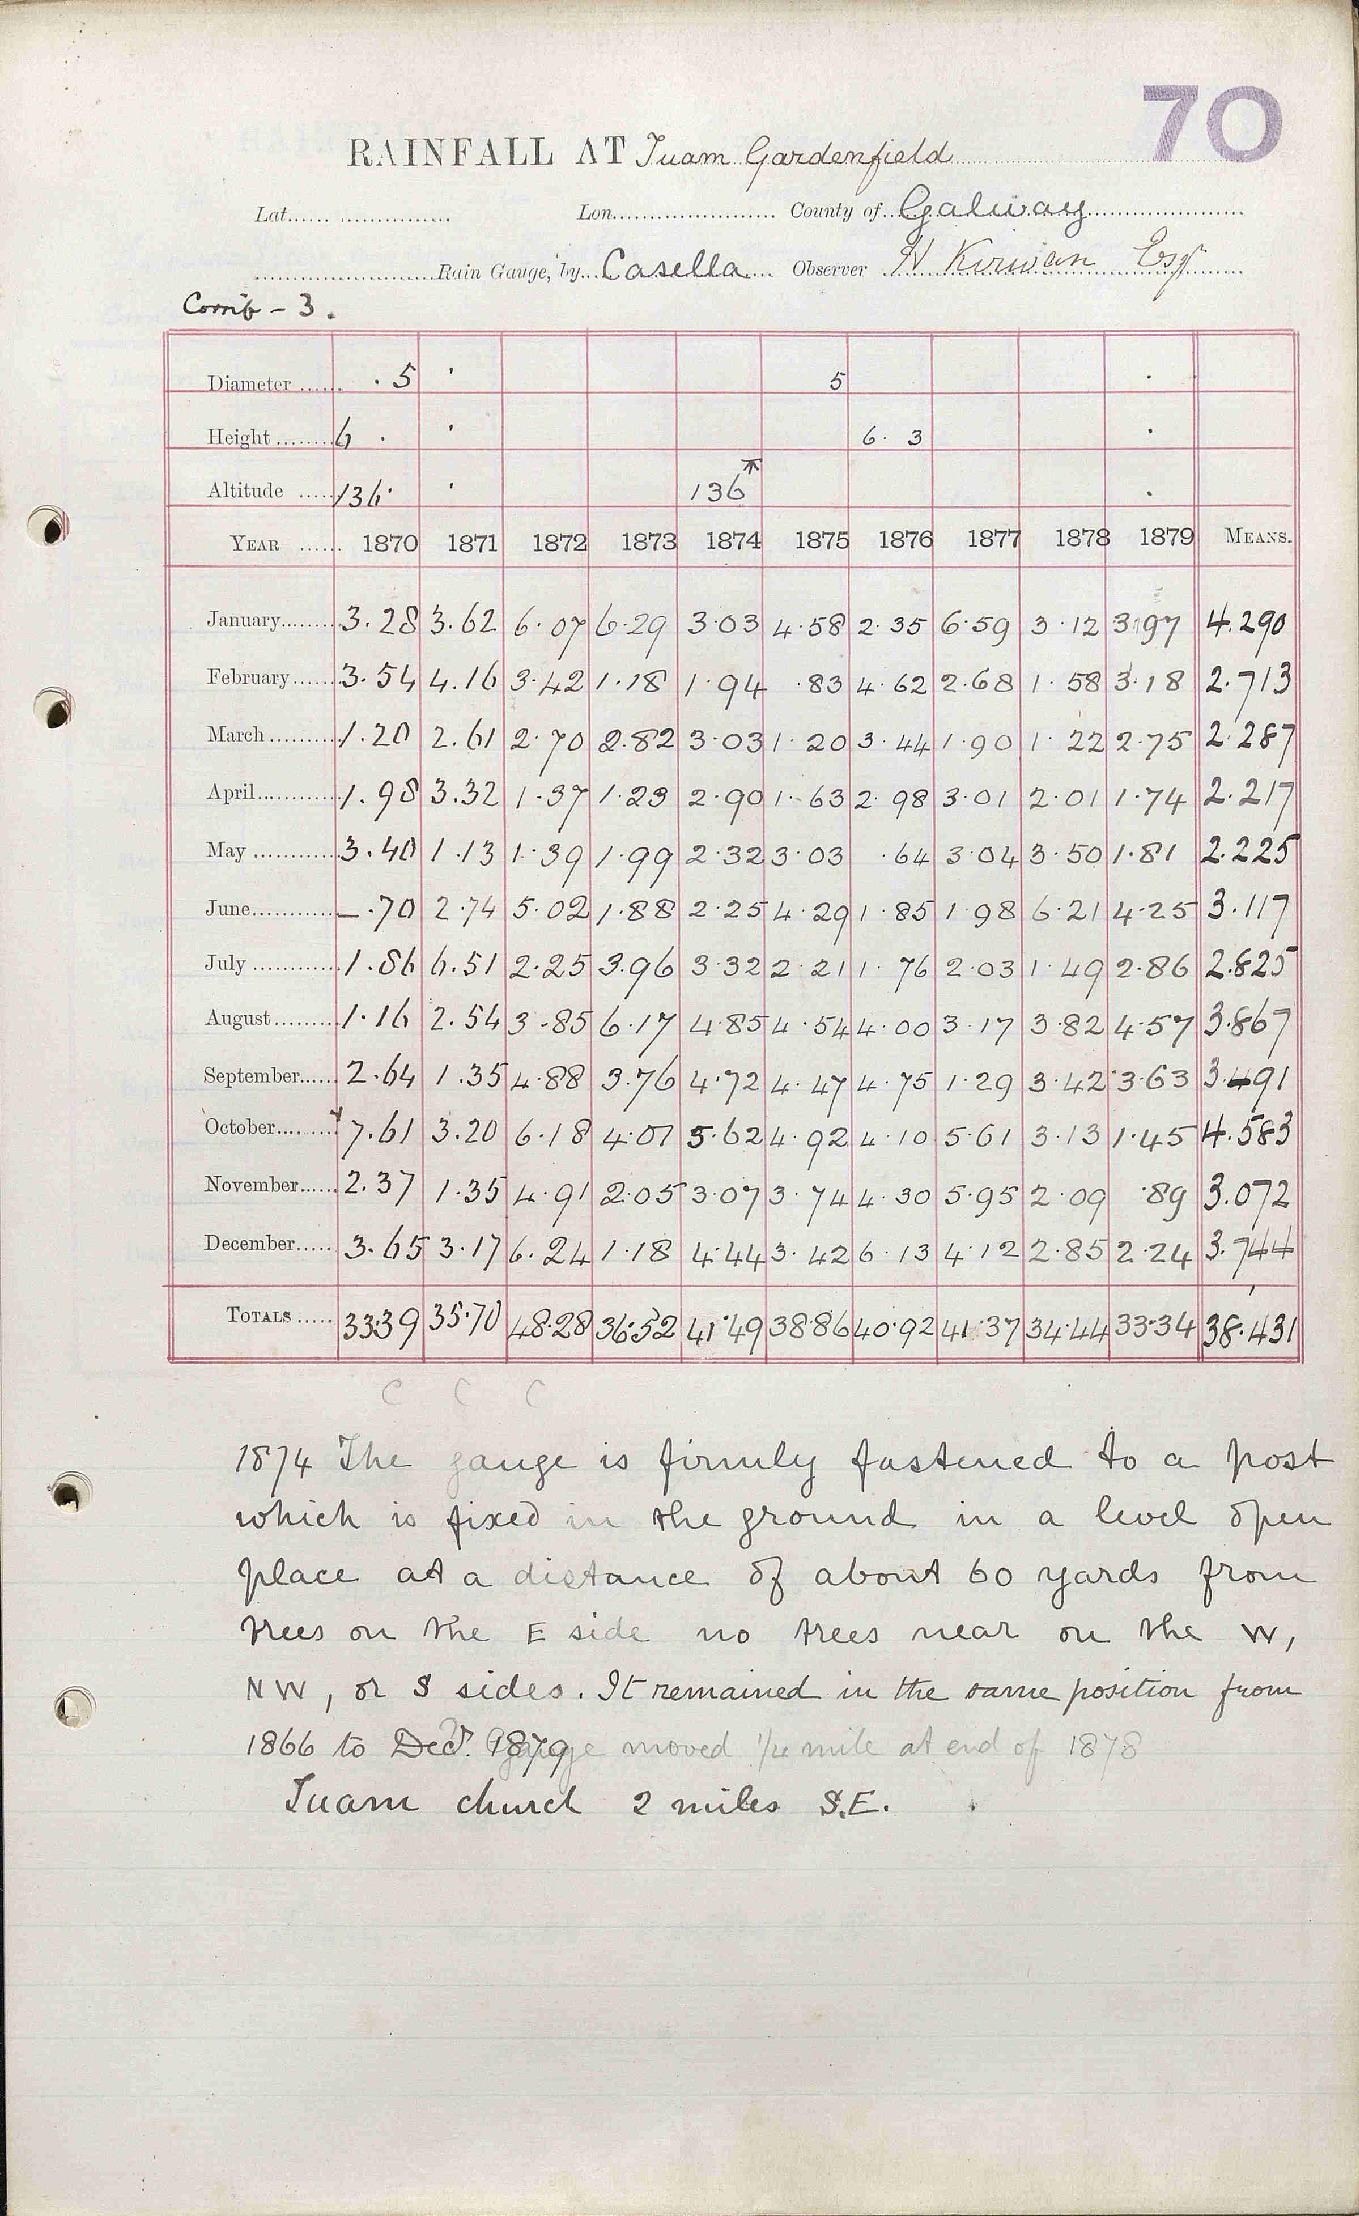 70
RAINFALL AT Tuam Gardenfield
Lat. Lon. County of Galway
Rain Gauge, by Casella Observer H Kirwan Esqr
Comb - 3.
Diameter ...... .5 5
Height ........ 6. 6.3
Altitude ..... 136. 136
YEAR ...... 1870 1871 1872 1873 1874 1875 1876 1877 1878 1879 MEANS.
January 3.28 3.62 6.07 6.29 3.03 4.58 2.35 6.59 3.12 3.97 4.290
February 3.54 4.16 3.42 1.18 1.94 .83 4.62 2.68 1.58 3.18 2.713
March 1.20 2.61 2.70 2.82 3.03 1.20 3.44 1.90 1.22 2.75 2.287
April 1.98 3.32 1.37 1.23 2.90 1.63 2.98 3.01 2.01 1.74 2.217
May 3.40 1.13 1.39 1.99 2.32 3.03 .64 3.04 3.50 1.81 2.225
June —.70 2.74 5.02 1.88 2.25 4.29 1.85 1.98 6.21 4.25 3.117
July 1.86 6.51 2.25 3.96 3.32 2.21 1.76 2.03 1.49 2.86 2.825
August 1.16 2.54 3.85 6.17 4.85 4.54 4.00 3.17 3.82 4.57 3.867
September 2.64 1.35 4.88 3.76 4.72 4.47 4.75 1.29 3.42 3.63 3.491
October 7.61 3.20 6.18 4.01 5.62 4.92 4.10 5.61 3.13 1.45 4.583
November 2.37 1.35 4.91 2.05 3.07 3.74 4.30 5.95 2.09 .89 3.072
December 3.65 3.17 6.24 1.18 4.44 3.42 6.13 4.12 2.85 2.24 3.744
TOTALS 33.39 35.70 48.28 36.52 41.49 38.86 40.92 41.37 34.44 33.34 38.431
C C C
1874 The gauge is firmly fastened to a post
which is fixed in the ground in a level open
place at a distance of about 60 yards from
trees on the E side no trees near on the W,
NW, or S sides. It remained in the same position from
1866 to Decr. 1879 Gauge moved 1/4 mile at end of 1878
Tuam church 2 miles S.E.